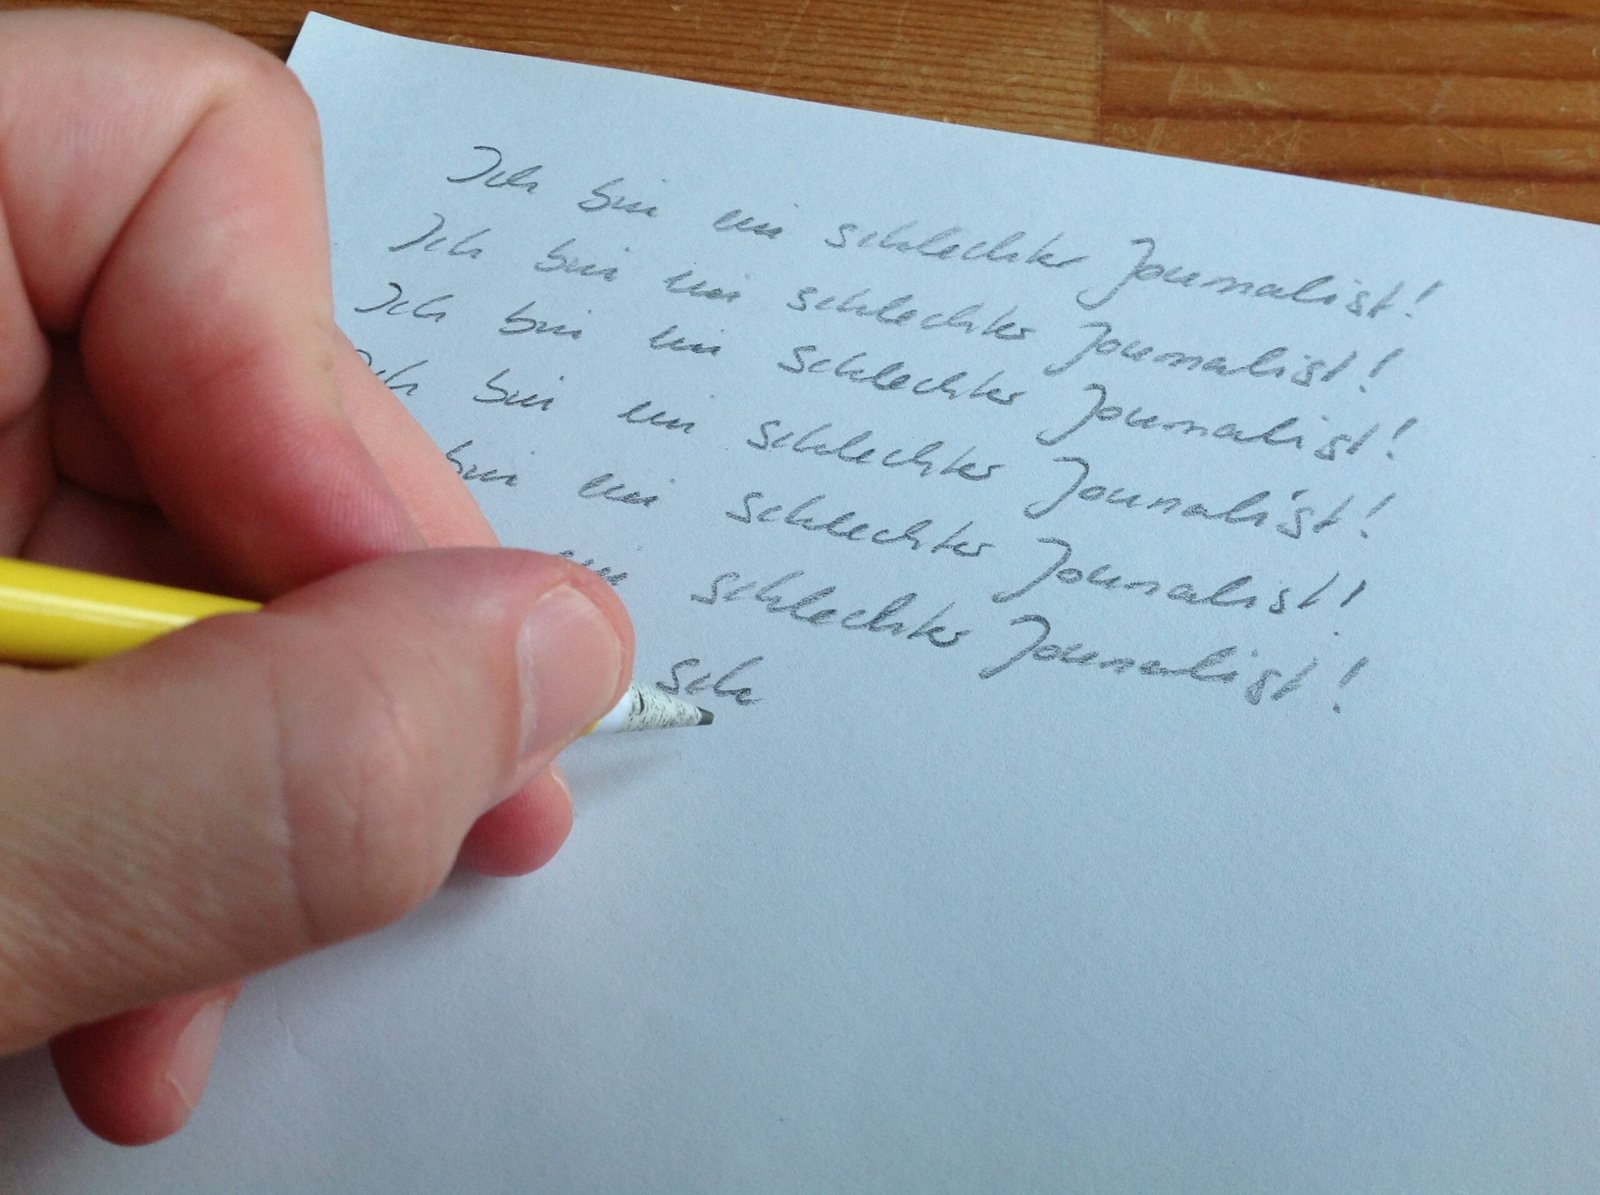 Ich bin ein schlechter Journalist!
Ich bin ein schlechter Journalist!
Ich bin ein schlechter Journalist!
Ich bin ein schlechter Journalist!
bin ein schlechter Journalist!
ein schlechter Journalist!
sch